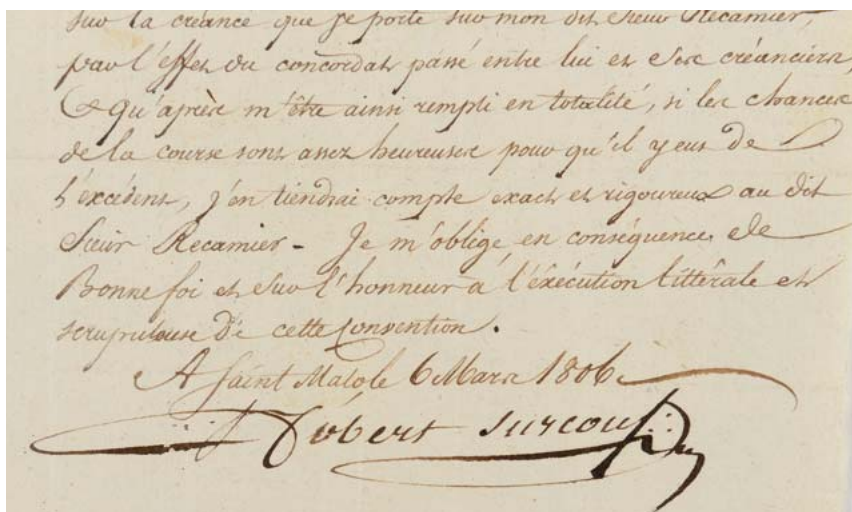 sur la créance que je porte sur mon dit Sieur Recamier,
par l'effet du concordat passé entre lui et ses créanciers,
& qu'après m'être ainsi rempli en totalité, si les chances
de la course sont assez heureuses pour qu'il y eut de
l'excédent, j'en tiendrai compte exact et rigoureux au dit
Sieur Recamier - Je m'oblige, en conséquence de
Bonne foi et sur l'honneur à l'éxécution littérale et
scrupuleuse de cette Convention.
A Saint Malo le 6 Mars 1806
Robert Surcouf